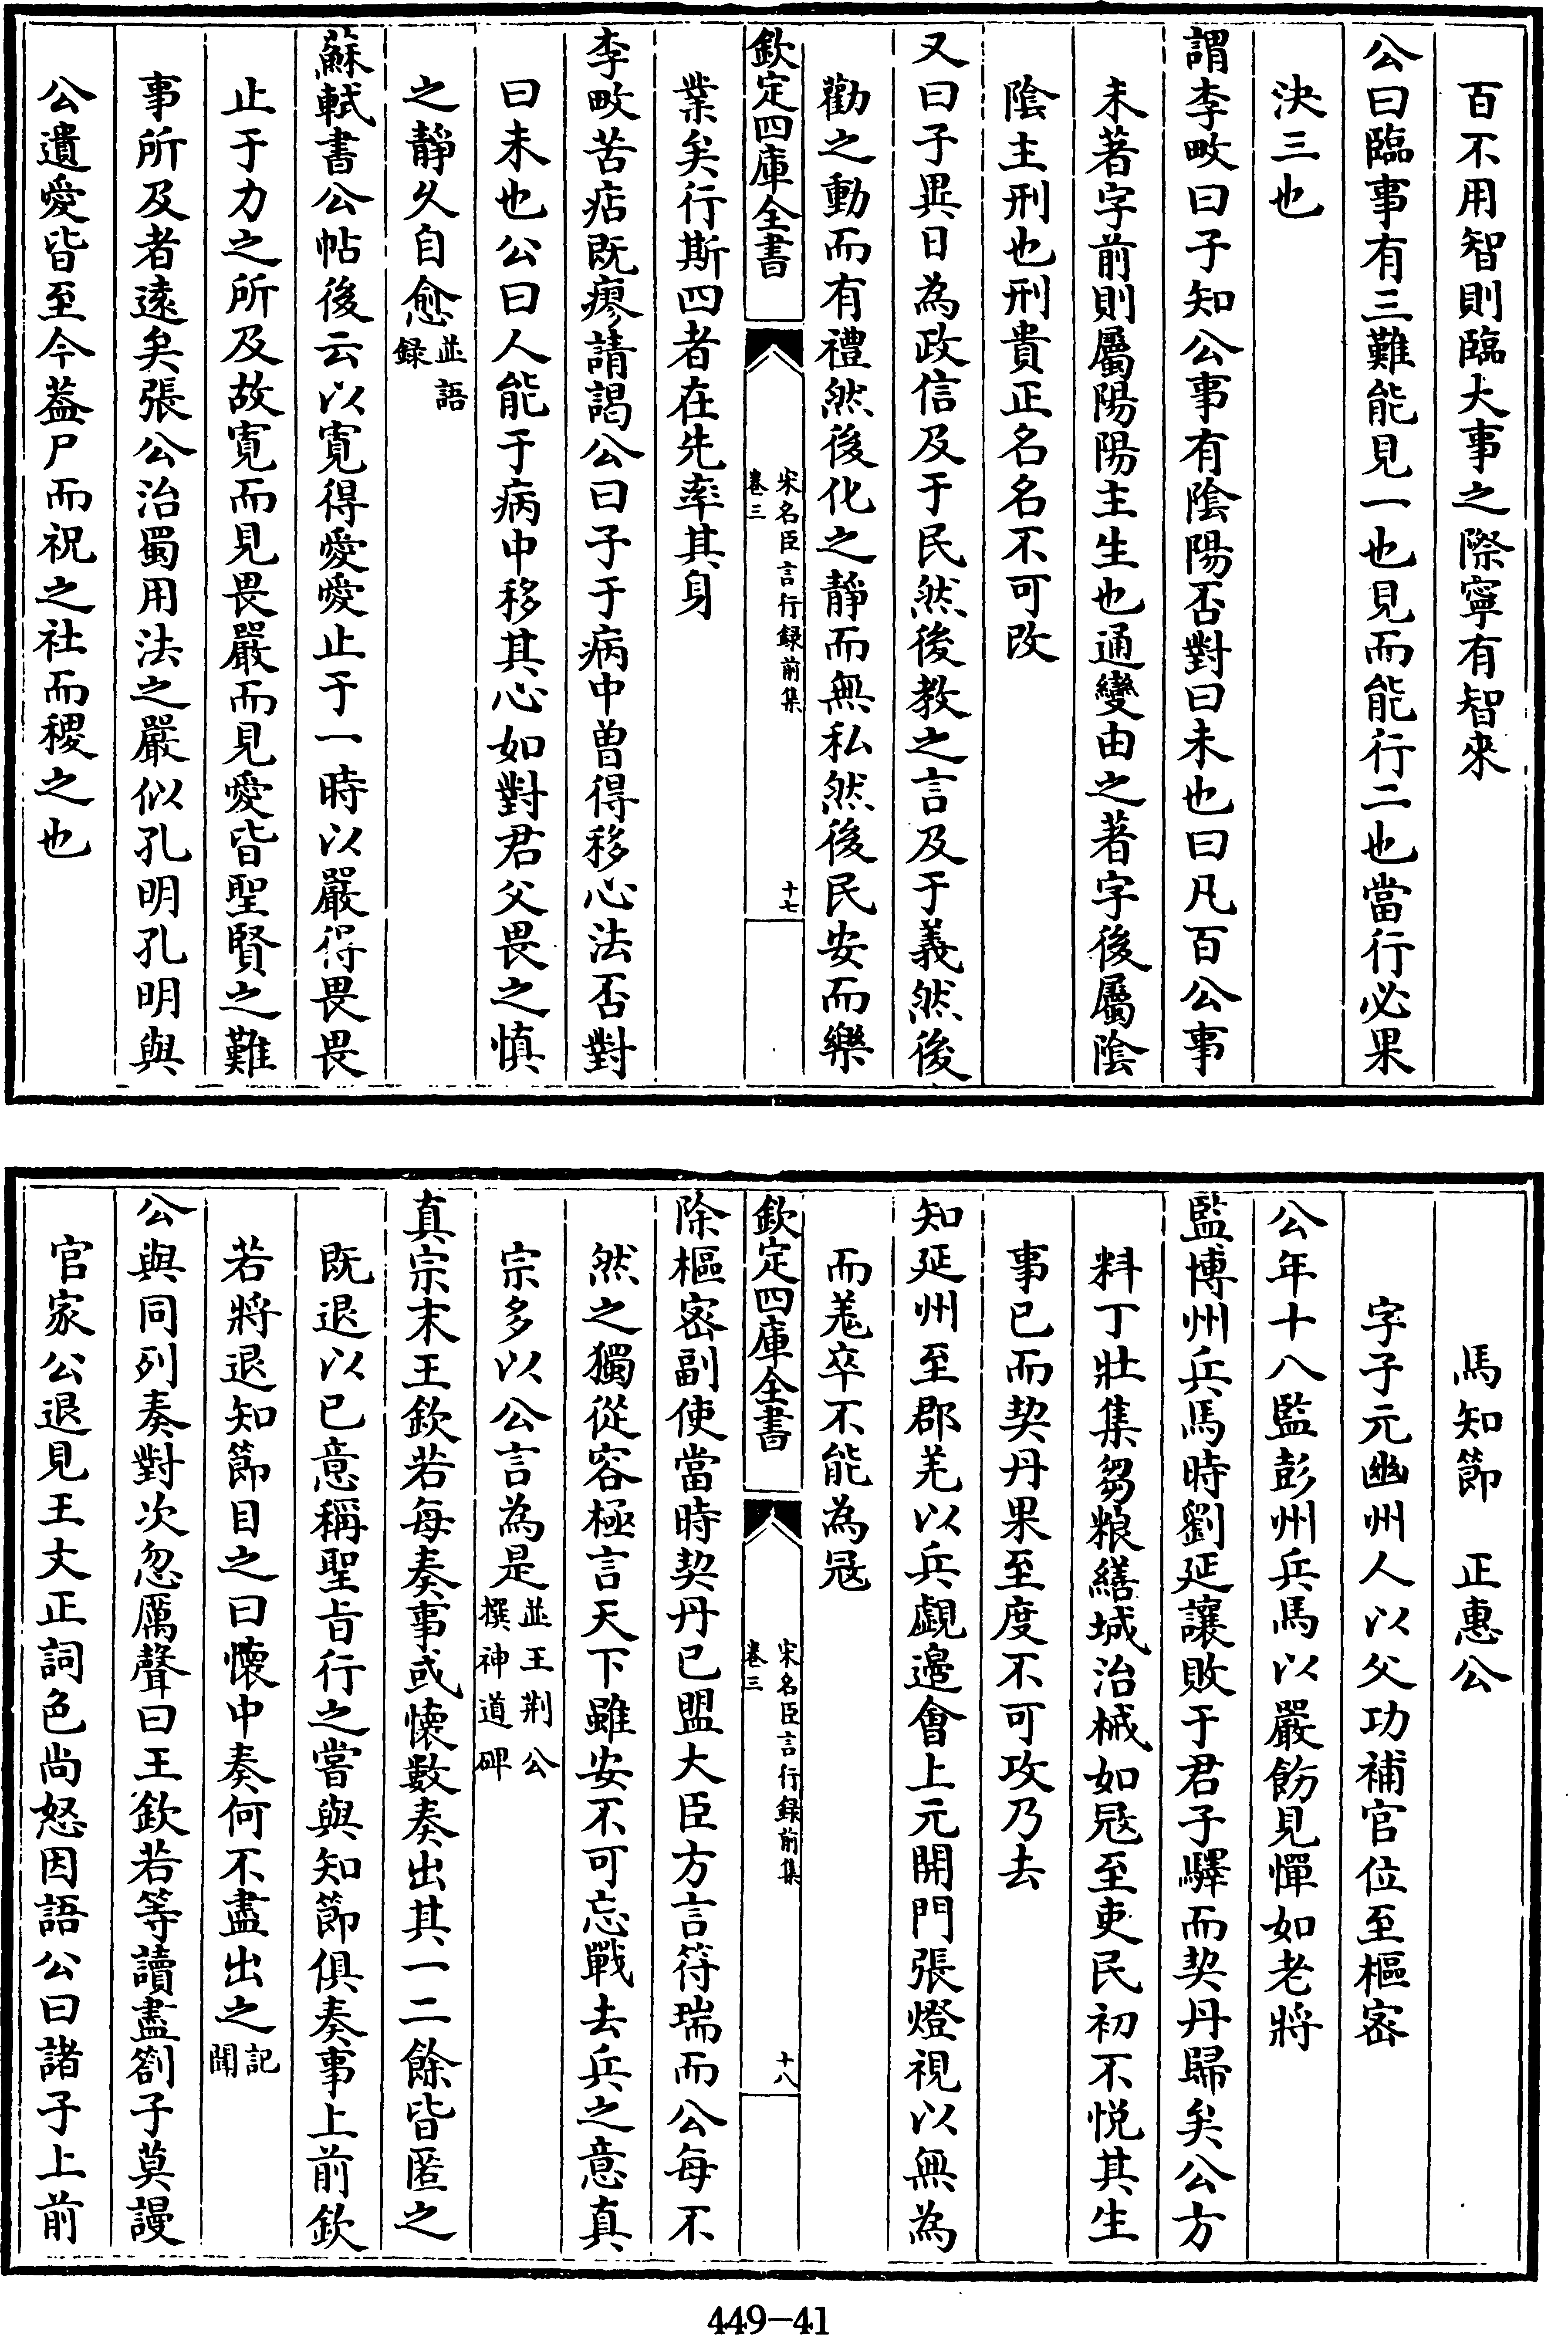 百不用智則臨大事之際寧有智來
公曰臨事有三難能見一也見而能行二也當行必果
決三也
謂李畋曰子知公事有隂陽否對曰未也曰凡百公事
未著字前則屬陽陽主生也通變由之著字後屬隂
隂主刑也刑貴正名名不可改
又曰子異日為政信及于民然後教之言及于義然後
勸之動而有禮然後化之靜而無私然後民安而樂
欽定四庫全書
宋名臣言行録前集
卷三
十七
業矣行斯四者在先率其身
李畋苦痁既瘳請謁公曰子于病中曽得移心法否對
曰未也公曰人能于病中移其心如對君父畏之慎
之靜久自愈並語
録
蘇軾書公帖後云以寛得愛愛止于一時以嚴得畏畏
止于力之所及故寛而見畏嚴而見愛皆聖賢之難
事所及者遠矣張公治蜀用法之嚴似孔明孔明與
公遺愛皆至今葢尸而祝之社而稷之也
馬知節　正惠公
字子元幽州人以父功補官位至樞宻
公年十八監彭州兵馬以嚴飭見憚如老將
監博州兵馬時劉延讓敗于君子驛而契丹歸矣公方
料丁壯集芻粮繕城治械如冦至吏民初不悦其生
事已而契丹果至度不可攻乃去
知延州至郡羌以兵覷邊會上元開門張燈視以無為
而羗卒不能為冦
欽定四庫全書
宋名臣言行録前集
卷三
十八
除樞宻副使當時契丹已盟大臣方言符瑞而公每不
然之獨從容極言天下雖安不可忘戰去兵之意真
宗多以公言為是並王荆公
撰神道碑
真宗末王欽若每奏事或懐數奏出其一二餘皆匿之
既退以已意稱聖㫖行之嘗與知節俱奏事上前欽
若將退知節目之曰懐中奏何不盡出之記
聞
公與同列奏對次忽厲聲曰王欽若等讀盡劄子莫謾
官家公退見王文正詞色尚怒因語公曰諸子上前
449-41